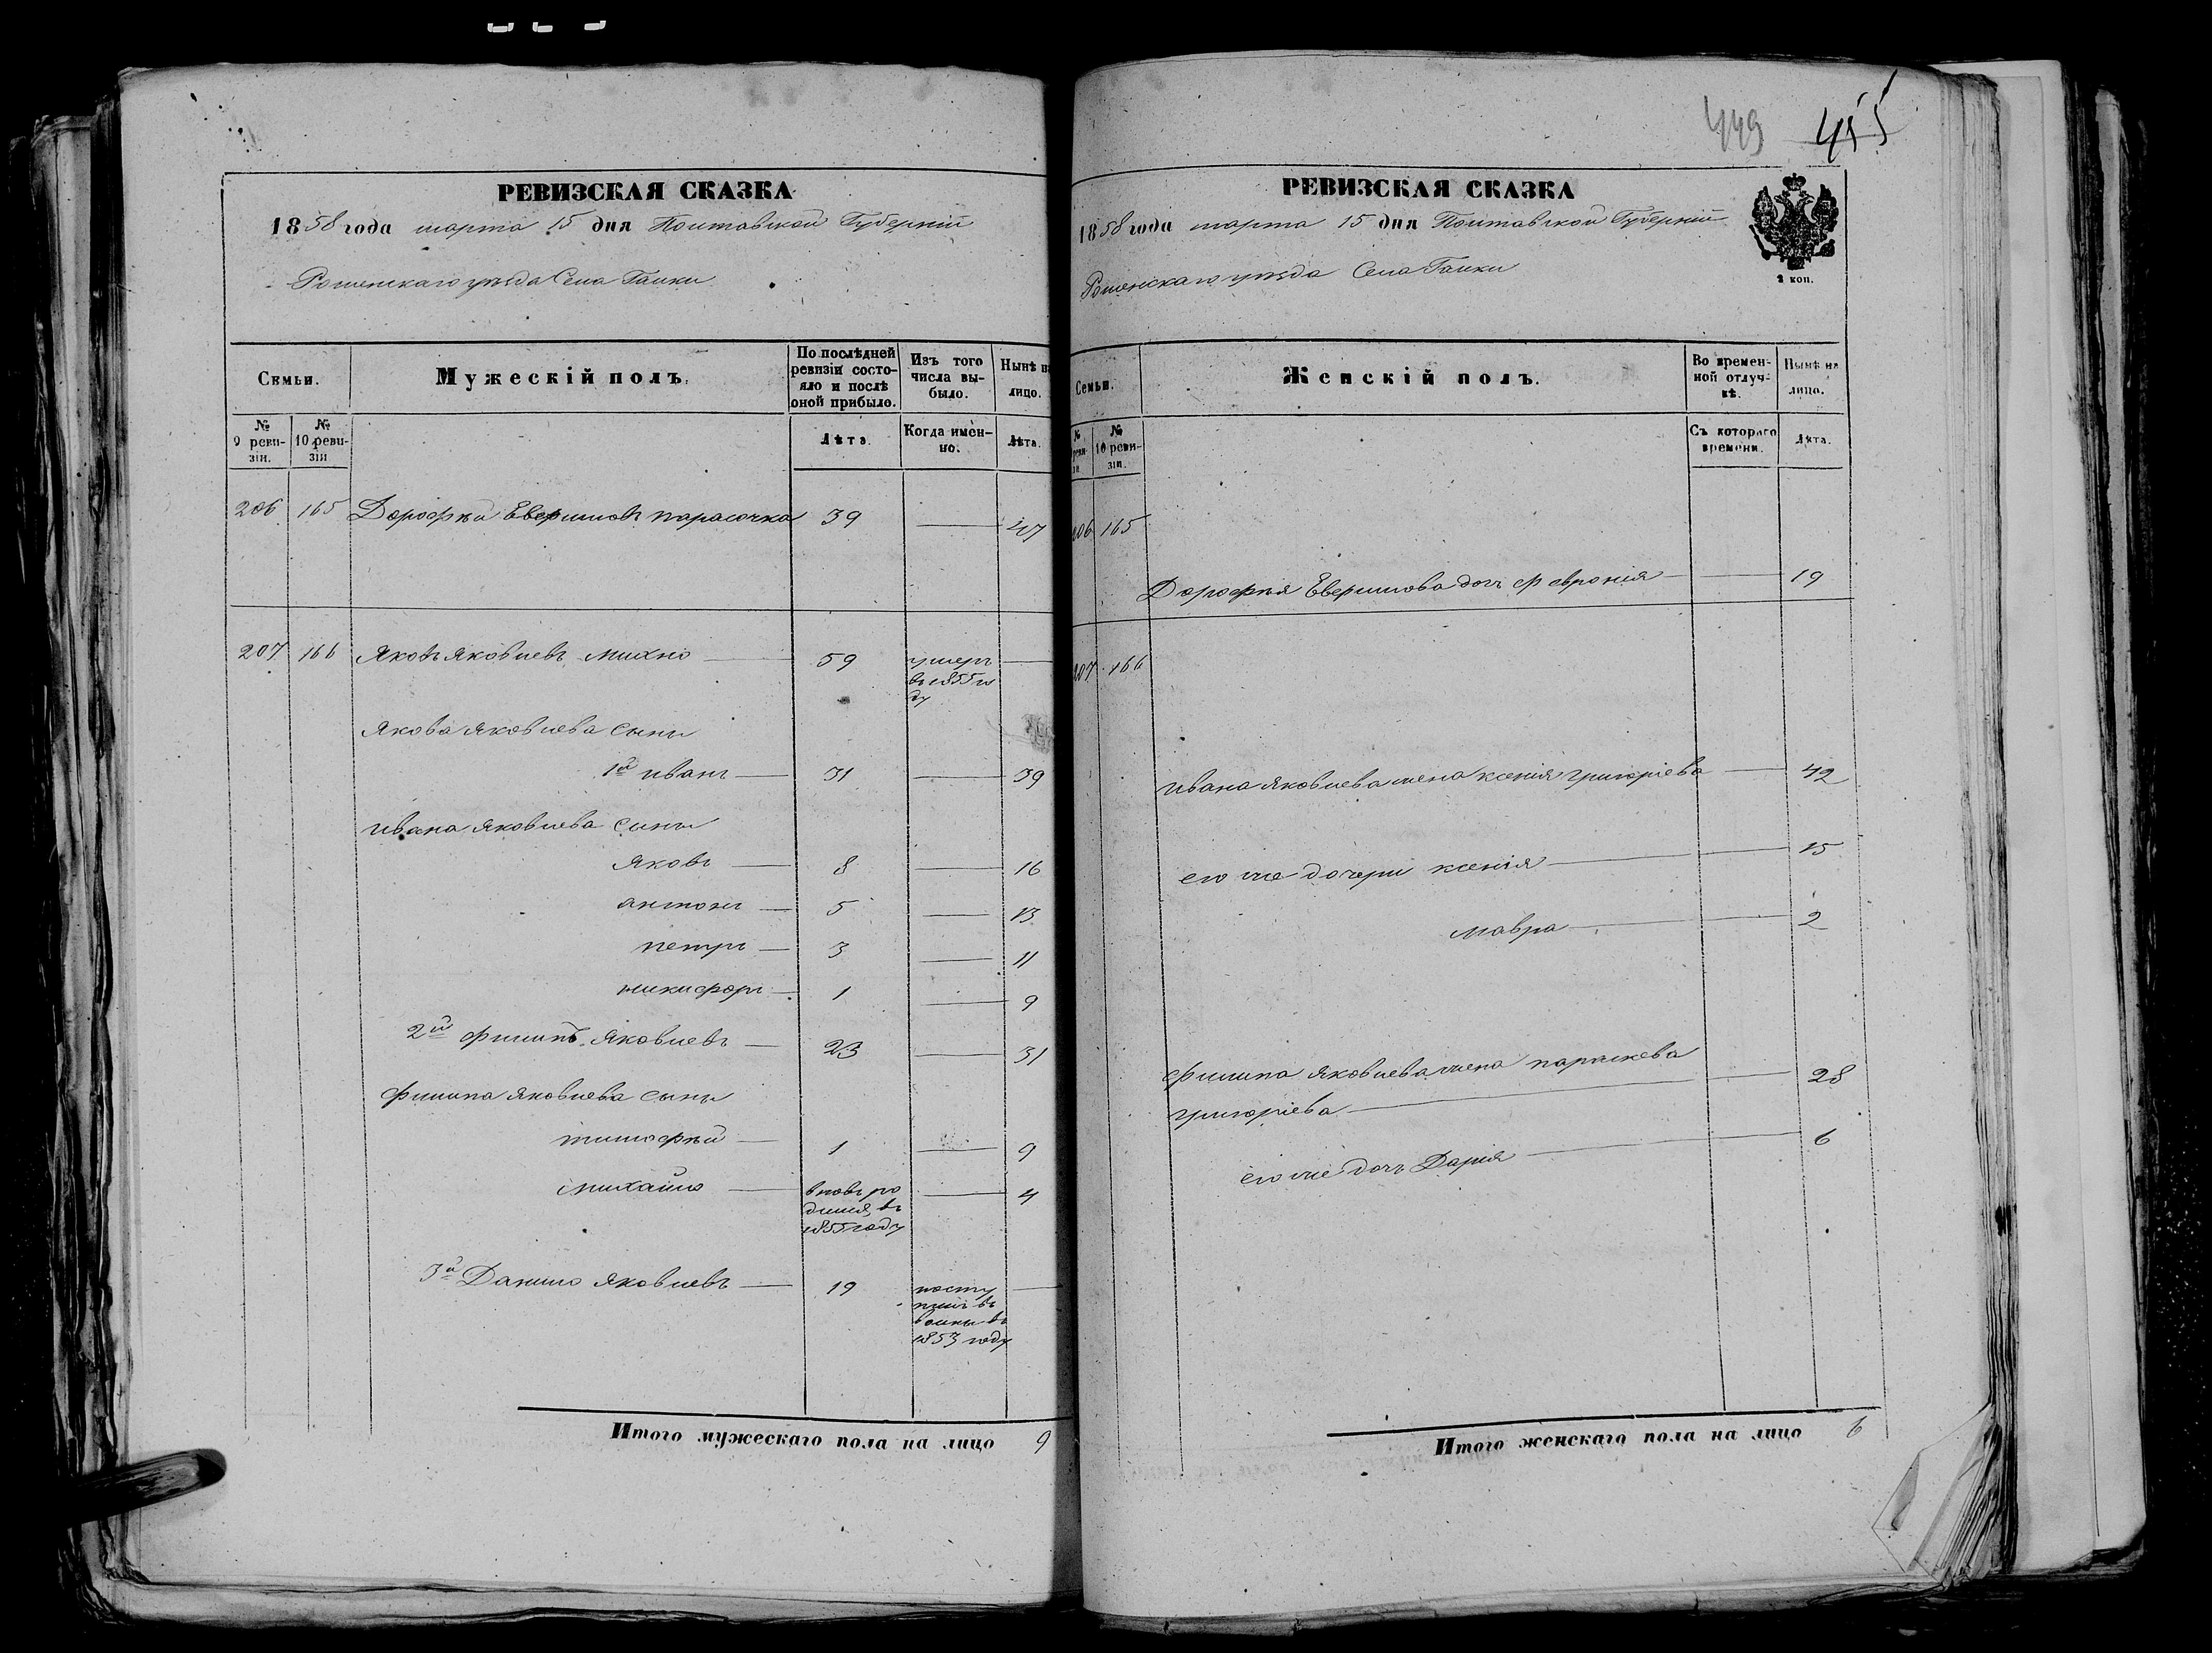 449 455
РЕВИЗСКАЯ СКАЗКА
1858 года марта 15 дня Полтавской Губерніи
Роменскаго уѣзда Села Галки
Семьи.
Мужескій полъ.
По послѣдней ревизіи состояло и послѣ оной прибыло.
Изъ того числа выбыло.
Нынѣ на лицо.
№ 9 ревизіи.
№ 10 ревизіи
Лѣта.
Когда именно.
Лѣта.
206 165 Дорофѣй Парасочка 39 — 47
207 166 Яковъ Яковлевъ Михно — 59 умеръ —
въ 1855 го
ду
Якова Яковлева сыны
1й Иванъ — 31 — 39
Ивана Яковлева сыны
Яковъ — 8 — 16
Антонъ — 5 — 13
Петръ — 3 — 11
Никифоръ — 1 — 9
2й Филипъ Яковлевъ — 23 — 31
Филипа Яковлева сыны
Тимофѣй — 1 — 9
Михайло — вновь ро — 4
дился въ
1855 году
3й Данило Яковлевъ — 19 посту —
пилъ въ
воины въ
1853 году
Итого мужескаго пола на лицо 9
РЕВИЗСКАЯ СКАЗКА
1858 года марта 15 дня Полтавской Губерніи
Роменскаго уѣзда Села Галки
2 коп.
Семьи.
Женскій полъ.
Во временной отлучкѣ.
Нынѣ на лицо.
№ ревизіи
№ 10 ревизіи.
Съ котораго времени.
Лѣта.
206 165
Дорофѣя дочь Февронія — — 19
207 166
Ивана Яковлева жена Ксенія Григоріева — 42
его же дочери Ксенія — — 15
Мавра — — 2
Филипа Яковлева жена Параскева
Григоріева — — 28
его же дочь Дарія — — 6
Итого женскаго пола на лицо 6